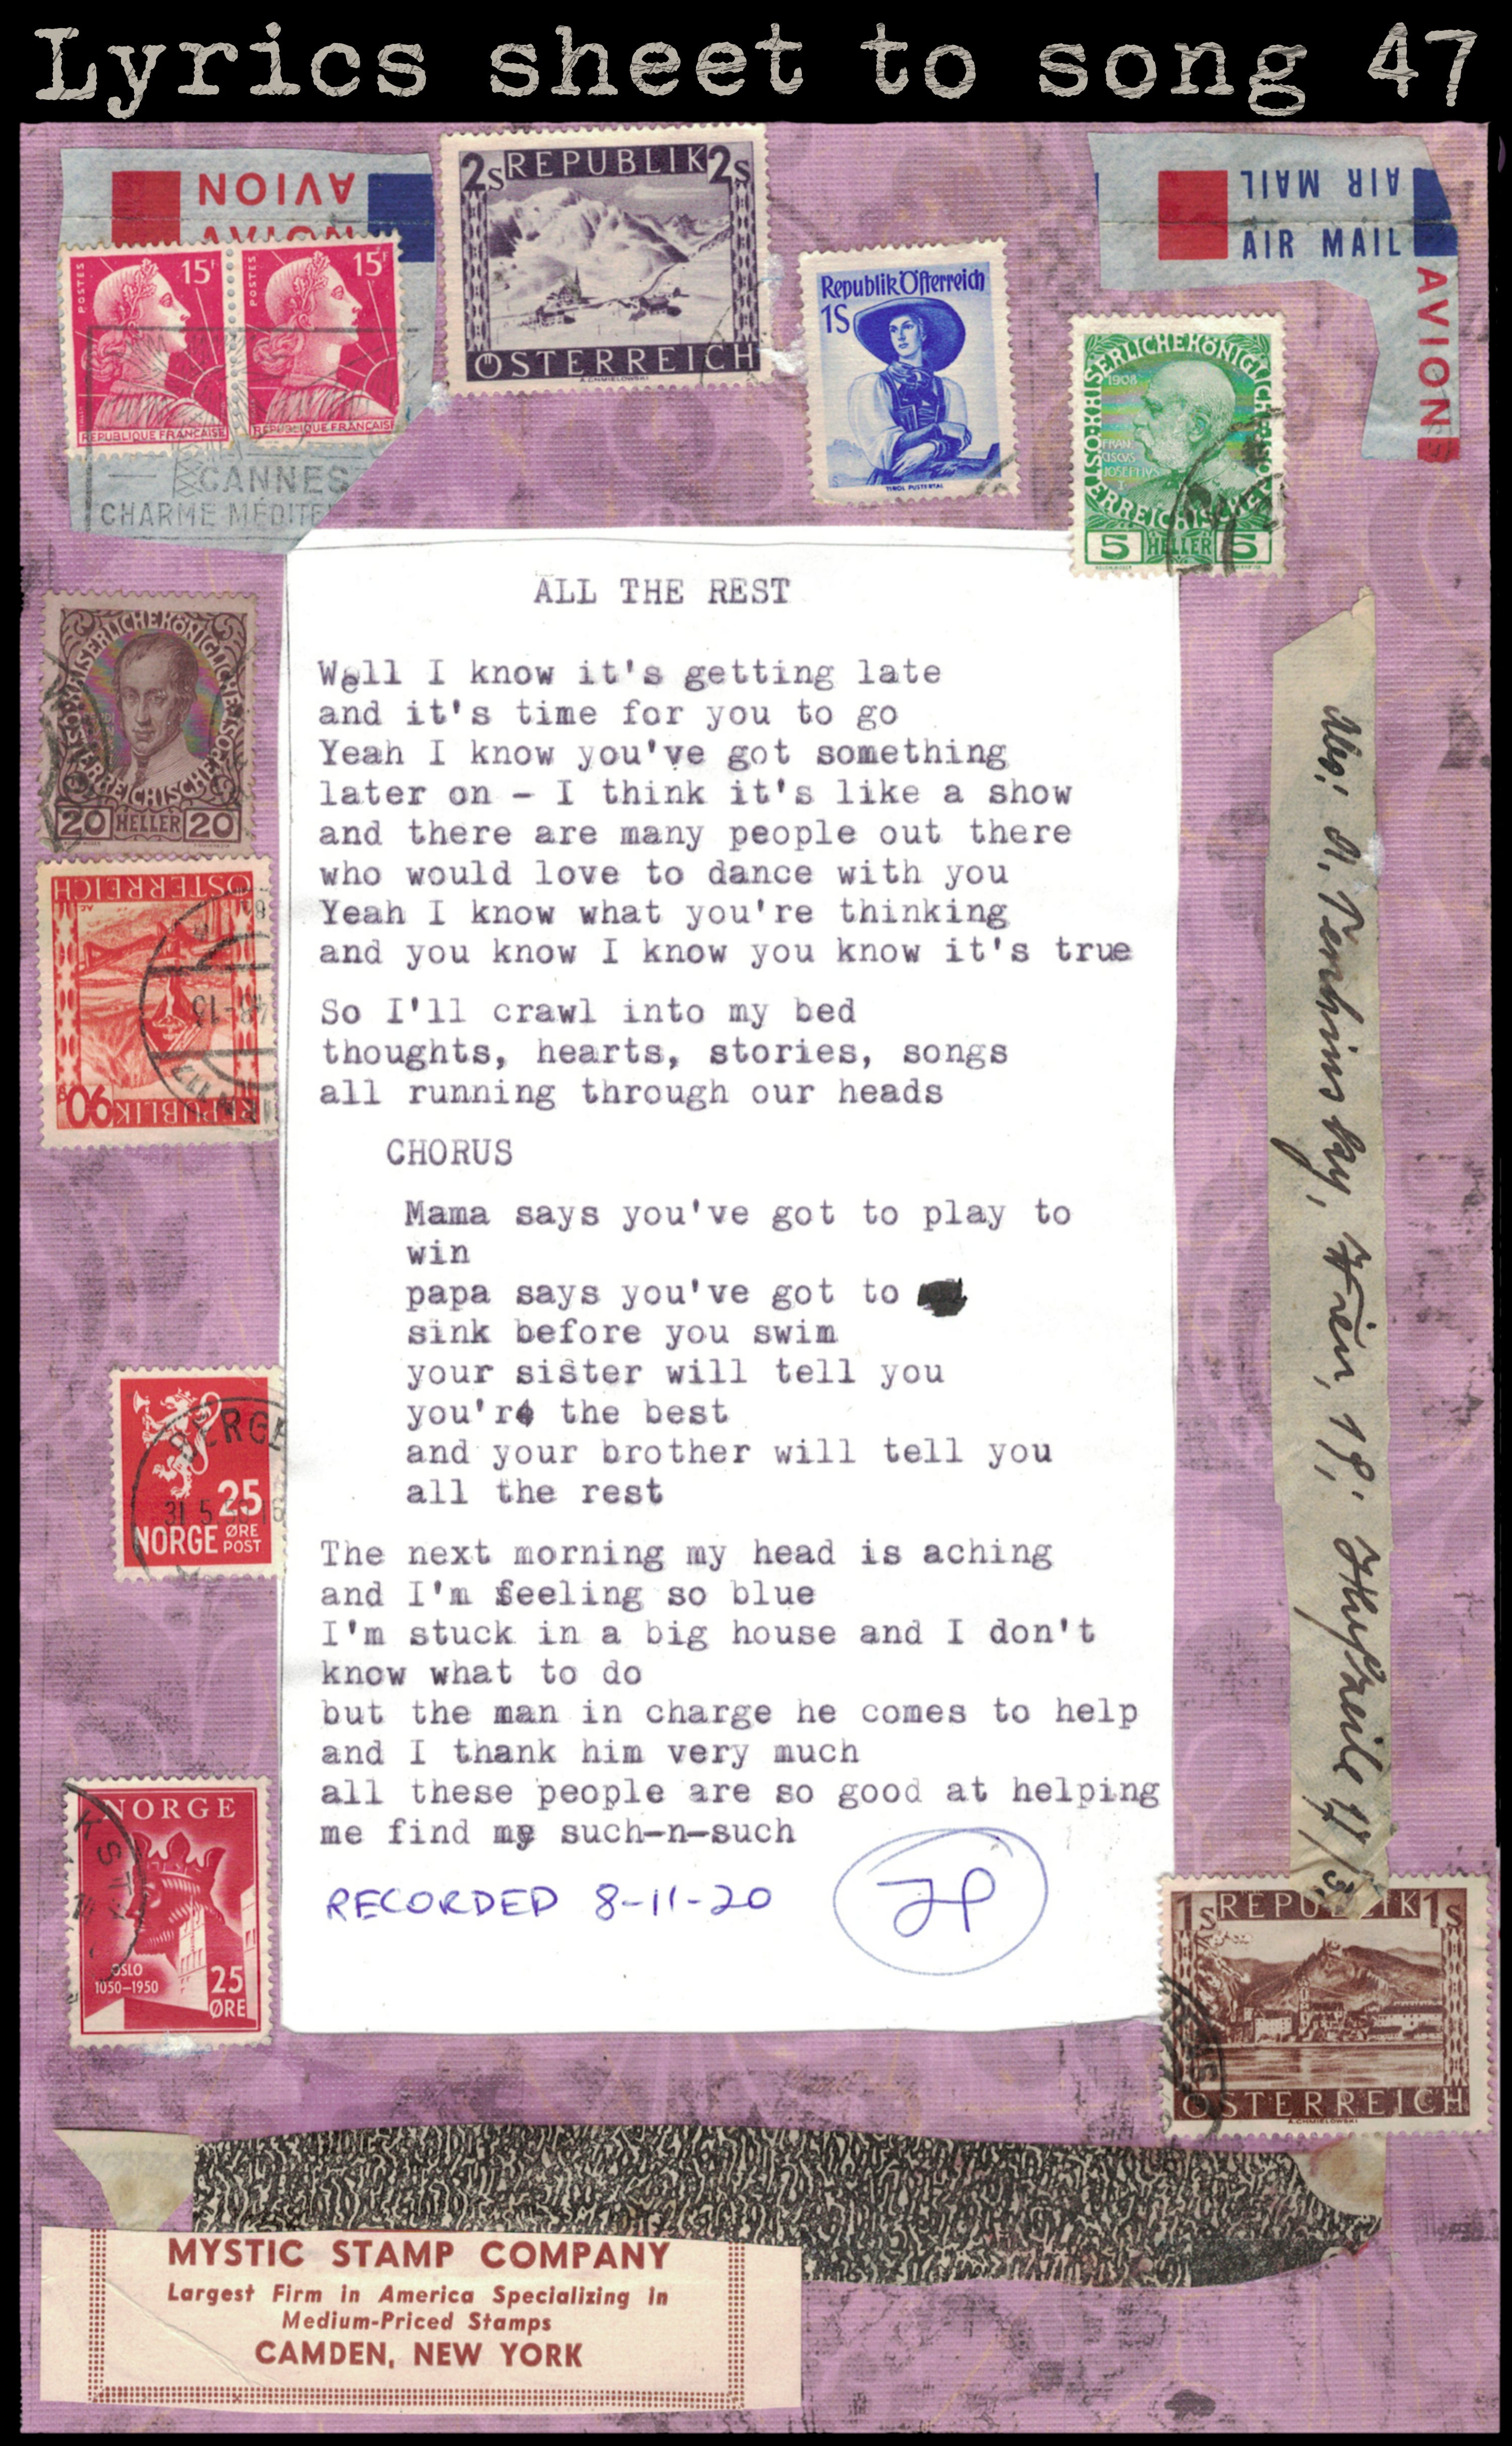 Lyrics sheet to song 47
AVION
AVION
15F
15F
POSTES
POSTES
REPUBLIQUE FRANÇAISE
REPUBLIQUE FRANÇAISE
CANNES
CHARME MÉDITE
2S REPUBLIK 2S
ÖSTERREICH
A.CHMIELOWSKI
Republik Österreich
1S
TIROL PUSTERTAL
AIR MAIL
AIR MAIL
AVION
1908
FRAN
CISCVS
JOSEPHVS
I
5 HELLER 5
20 HELLER 20
ÖSTERREICH
REPUBLIK
ALL THE REST
Well I know it's getting late
and it's time for you to go
Yeah I know you've got something
later on - I think it's like a show
and there are many people out there
who would love to dance with you
Yeah I know what you're thinking
and you know I know you know it's true
So I'll crawl into my bed
thoughts, hearts, stories, songs
all running through our heads
CHORUS
Mama says you've got to play to
win
papa says you've got to
sink before you swim
your sister will tell you
you're the best
and your brother will tell you
all the rest
The next morning my head is aching
and I'm feeling so blue
I'm stuck in a big house and I don't
know what to do
but the man in charge he comes to help
and I thank him very much
all these people are so good at helping
me find my such-n-such
RECORDED 8-11-20
JP
BERGE
25
NORGE ØRE
POST
NORGE
OSLO
1050-1950
25
ØRE
1S REPUBLIK 1S
ÖSTERREICH
A.CHMIELOWSKI
MYSTIC STAMP COMPANY
Largest Firm in America Specializing in
Medium-Priced Stamps
CAMDEN, NEW YORK